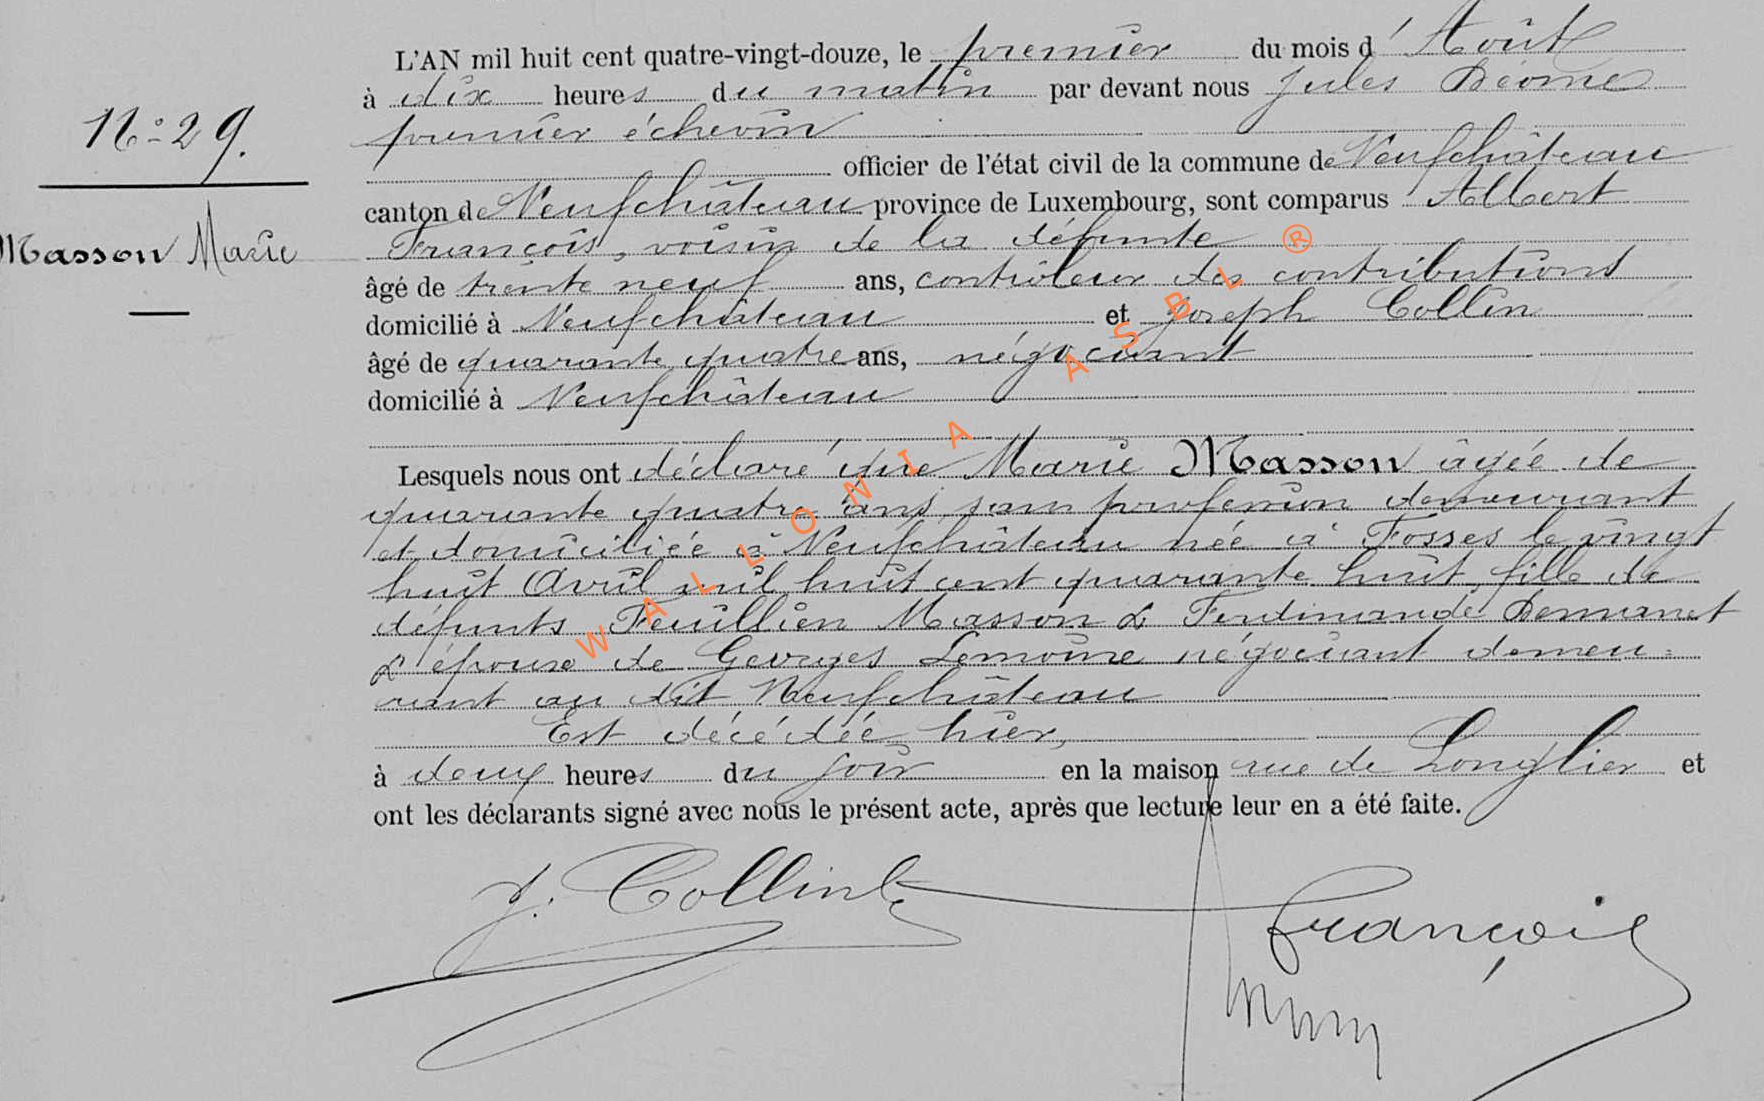 L'AN mil huit cent quatre-vingt-douze, le premier du mois d'Août
à dix heures du matin par devant nous Jules Déome
premier échevin
N° 29.
officier de l'état civil de la commune de Neufchâteau
canton de Neufchâteau province de Luxembourg, sont comparus Albert
Masson Marie
François, voisin de la défunte
âgé de trente neuf ans, contrôleur des contributions
domicilié à Neufchâteau et Joseph Collin
âgé de quarante quatre ans, négociant
domicilié à Neufchâteau
Lesquels nous ont déclaré que Marie Masson âgée de
quarante quatre ans, sans profession demeurant
et domiciliée à Neufchâteau née à Fosses le vingt
huit Avril mil huit cent quarante huit, fille de
défunts Feuillien Masson & Ferdinande Demanet
& épouse de Georges Lemoine négociant demeu=
rant au dit Neufchâteau
Est décédée hier,
à deux heures du soir en la maison rue de Longlier et
ont les déclarants signé avec nous le présent acte, après que lecture leur en a été faite.
J. Collin
François
WALLONIA ASBL ®